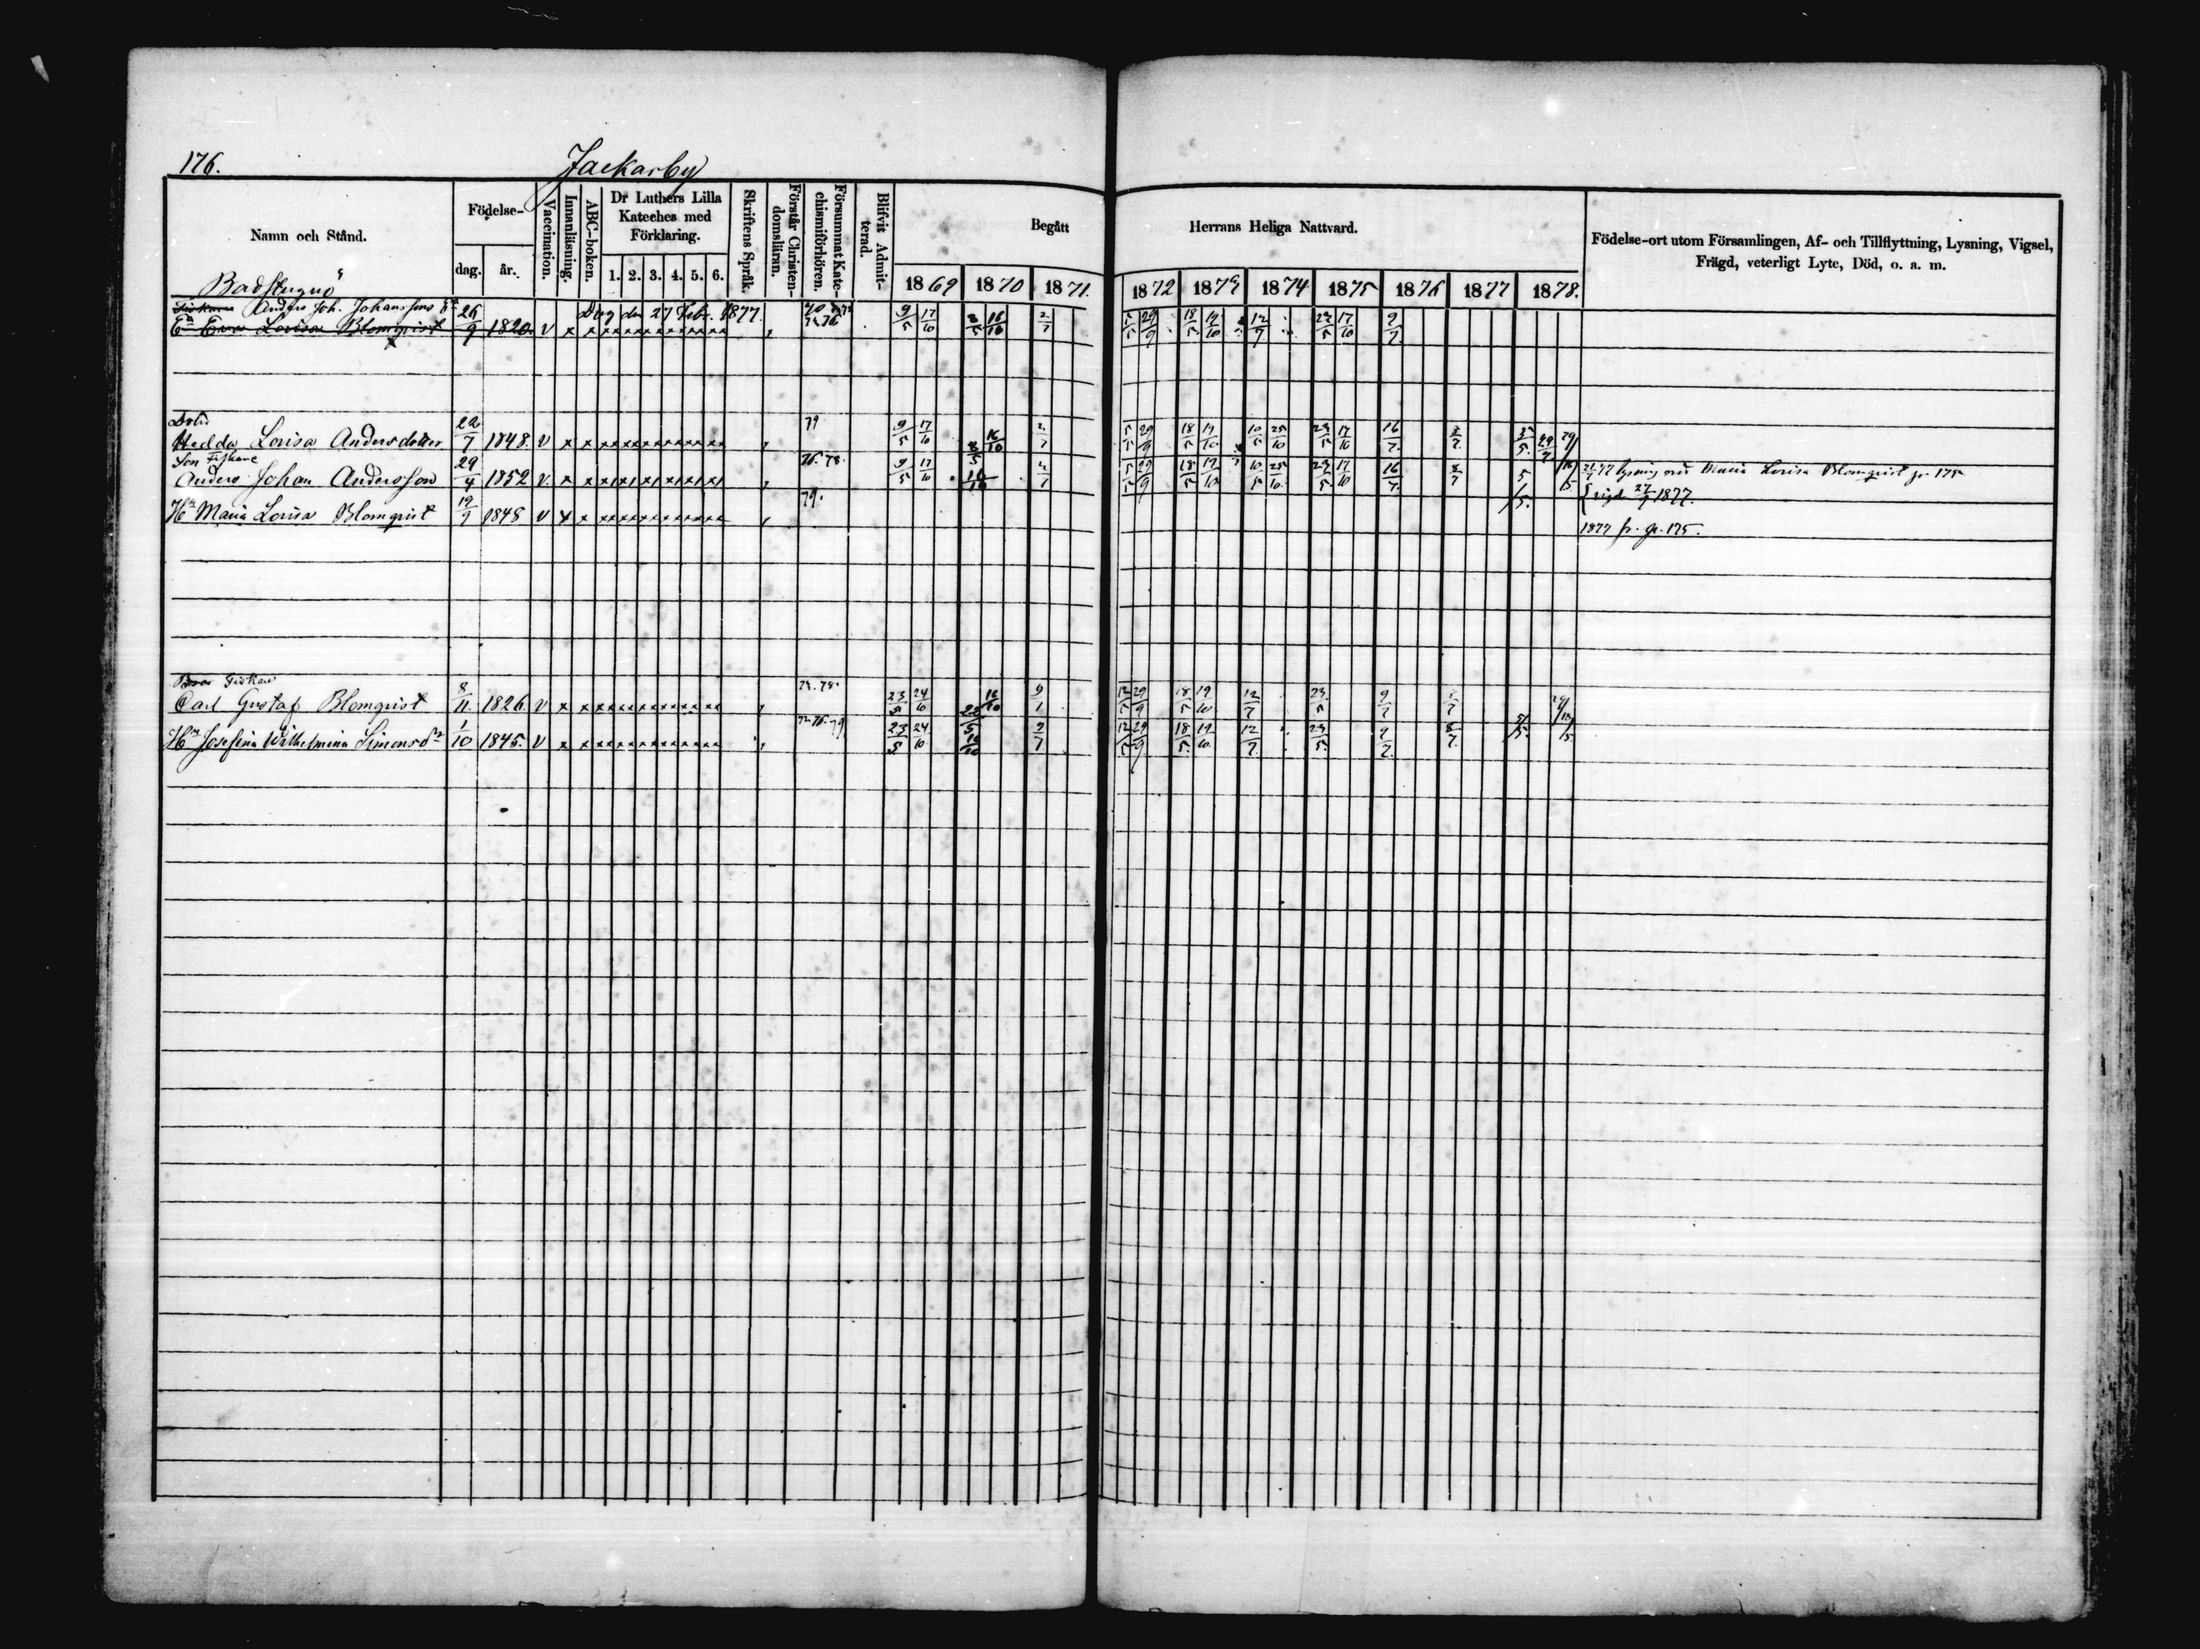 176.
Jackarby
Namn och Stånd.
Födelse-
dag. år.
Vaccination.
Innanläsning.
ABC-boken.
Dr Luthers Lilla Kateches med Förklaring.
1. 2. 3. 4. 5. 6.
Skriftens Språk.
Förstår Christendomsläran.
Försummat Katechismiförhören.
Blifvit Admitterad.
Begått Herrans Heliga Nattvard.
1869 1870 1871. 1872 1873 1874 1875 1876 1877 1878.
Födelse-ort utom Församlingen, Af- och Tillflyttning, Lysning, Vigsel,
Frägd, veterligt Lyte, Död, o. a. m.
Badstuguö
Fiskaren Anders Joh. Johanssons Ea 26/9
Ea Eva Lovisa Blomqvist 1820. v Dog den 27 Febr. 1877. 9/5 17/10 2/5 16/10 2/7 5/5 29/9 18/5 19/10 12/7 23/5 17/10 9/7
Dotr
Hedda Lovisa Andersdotter 22/7 1848. v 79 9/5 17/10 2/5 16/10 2/7 5/5 29/9 18/5 19/10 10/5 25/10 23/5 17/10 16/7 8/7 5/5 29/7
Son Fiskare
Anders Johan Andersson 29/4 1852 v. 76. 78. 9/5 17/10 16/10 2/7 5/5 29/9 18/5 19/10 10/5 25/10 23/5 17/10 16/7 8/7 lysning med Maria Lovisa Blomqvist p. 175
vigd 27/9 1877.
Hu Maria Lovisa Blomqvist 19/9 1848 v 79. 1877 fr. p. 175.
Fiskare
Carl Gustaf Blomqvist 8/11 1826 v 78. 23/5 24/10 16/10 12/5 29/9 18/5 19/10 12/7 23/5 9/7 8/7
Hu Josefina Wilhelmina Simonsdr 1/10 1845. v 76. 79 23/5 24/10 16/10 2/7 12/5 29/9 18/5 19/10 12/7 23/5 9/7 8/7 5/5